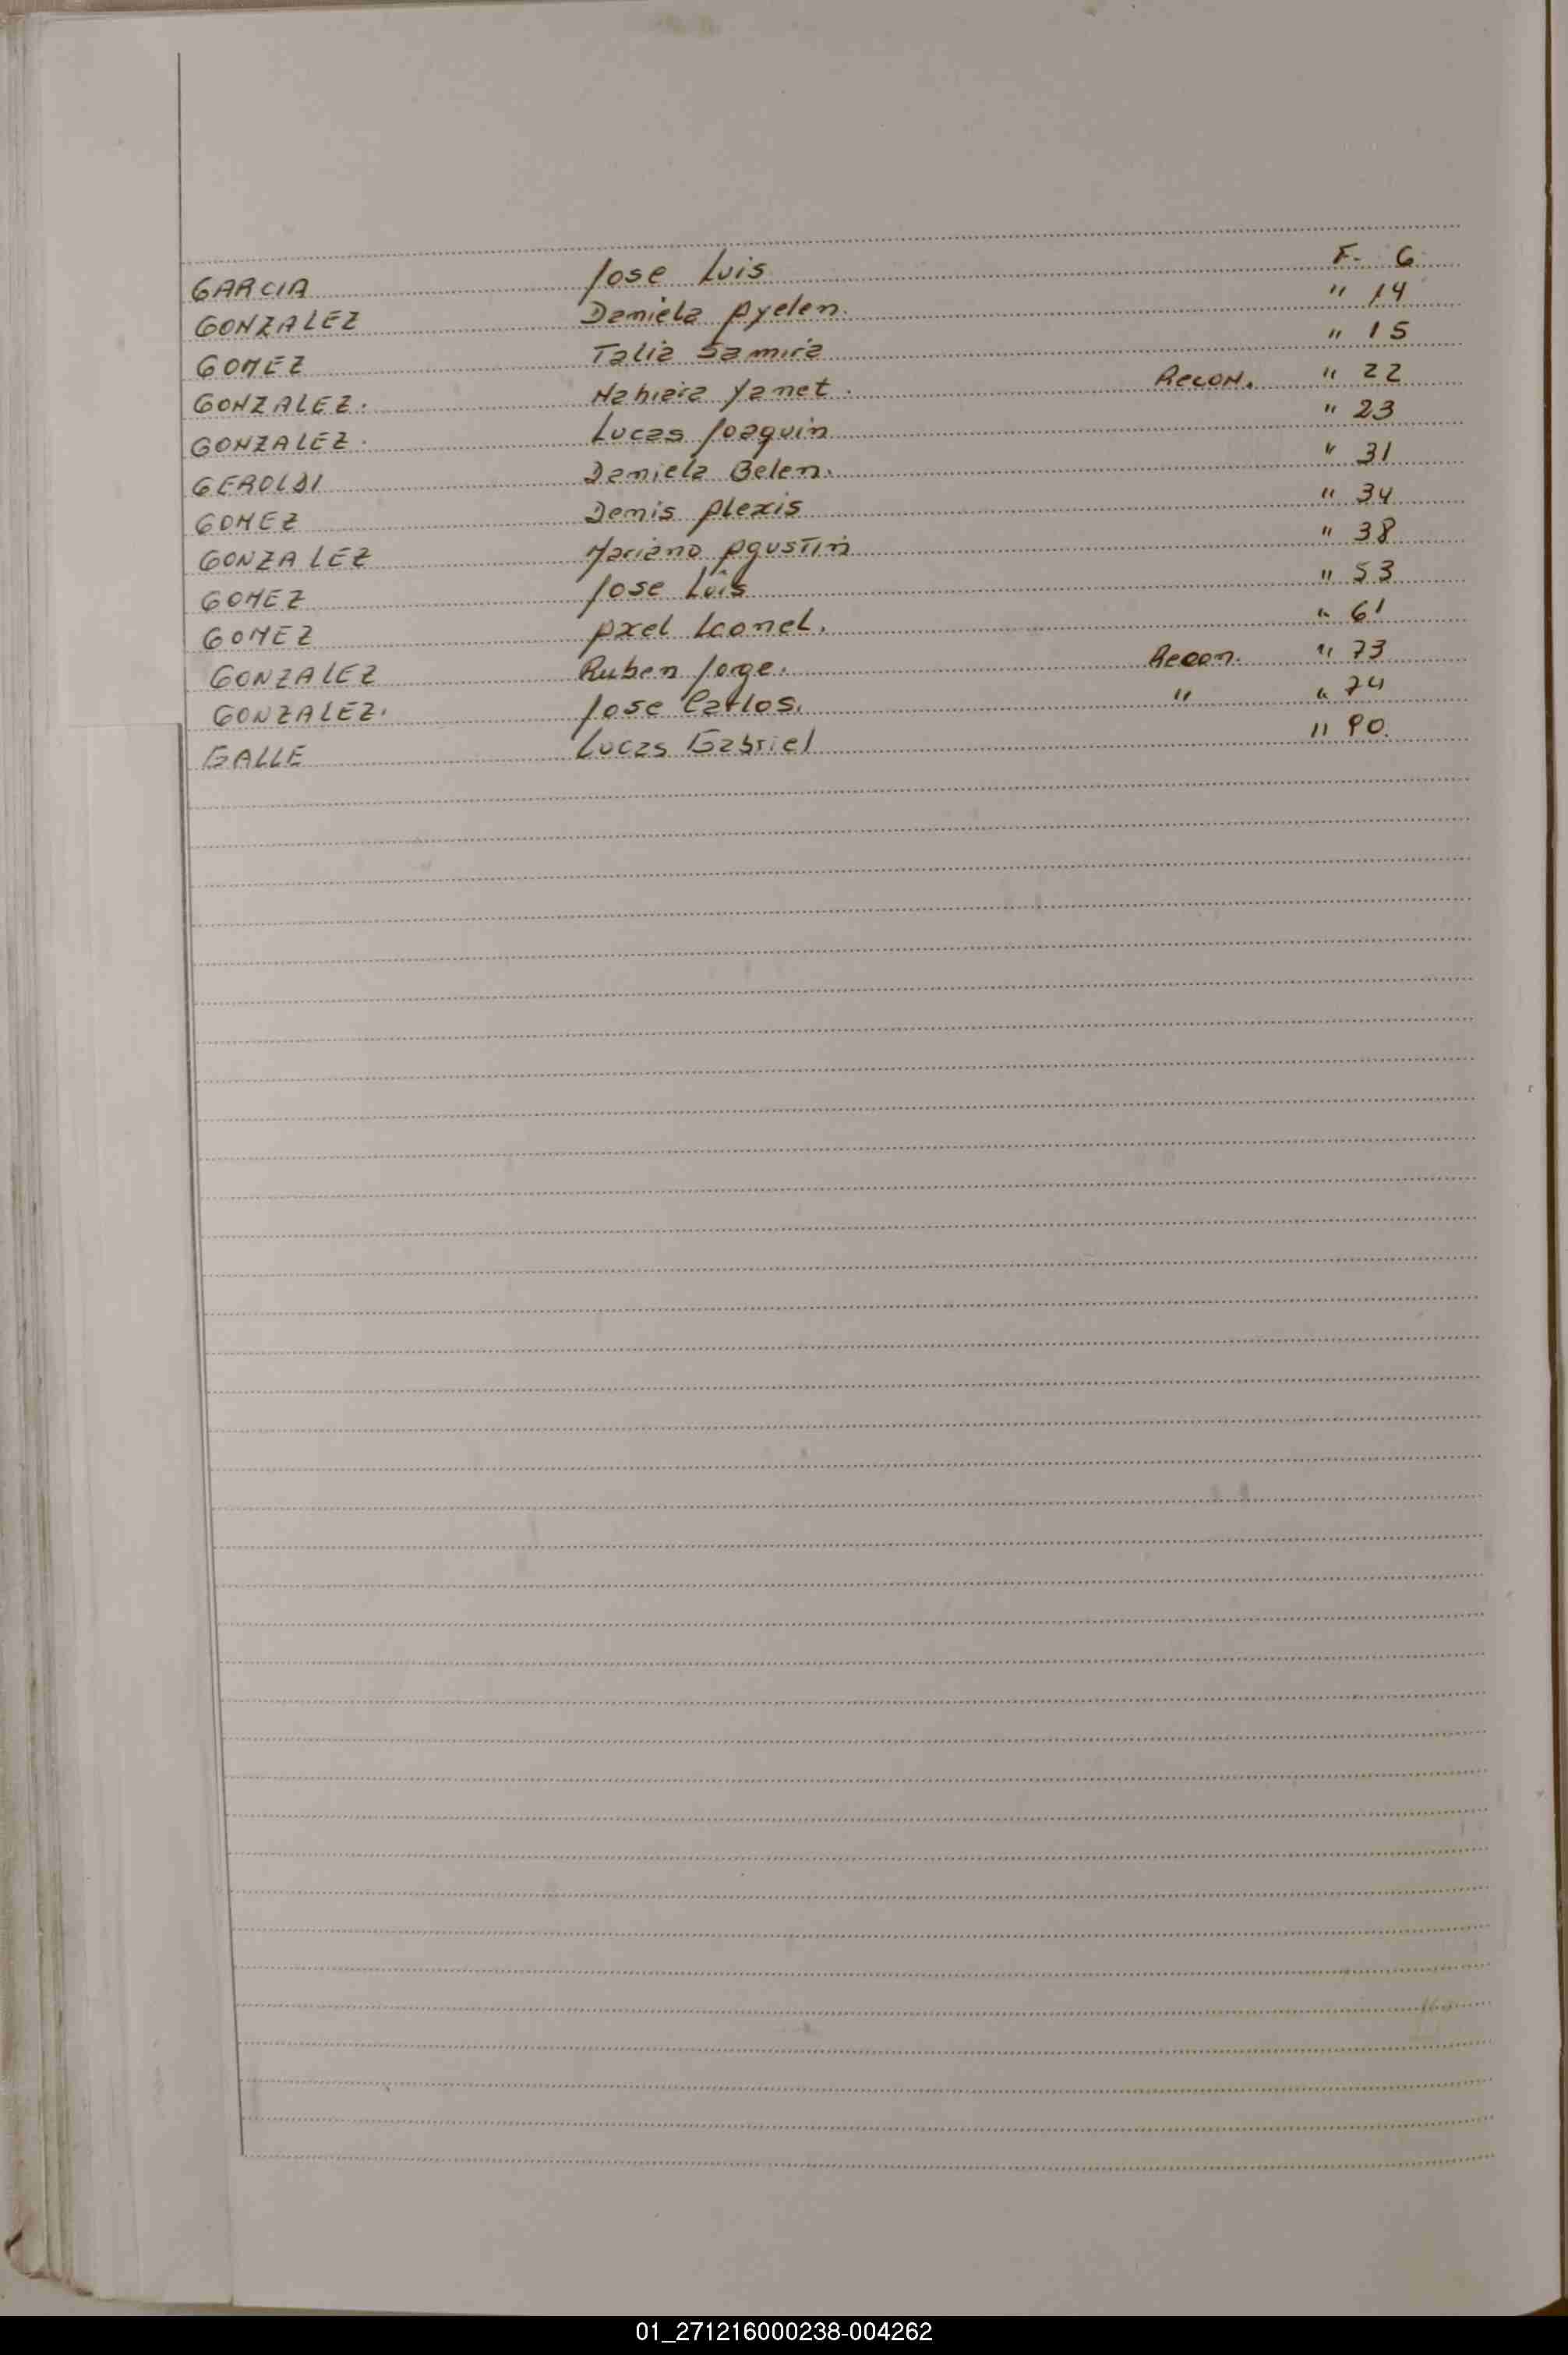 GARCIA Jose Luis F. 6
GONZALEZ Daniela Ayelen. " 14
GOMEZ Talia Samira " 15
GONZALEZ. Nahiara Yanet. Recon. " 22
GONZALEZ. Lucas Joaquin " 23
GEROLDI Daniela Belen. " 31
GOMEZ Denis Alexis " 34
GONZALEZ Mariano Agustin " 38
GOMEZ Jose Luis " 53
GOMEZ Axel Leonel. " 61
GONZALEZ Ruben Jorge. Recon. " 73
GONZALEZ. Jose Carlos. " " 74
GALLE Lucas Gabriel " 90.
01_271216000238-004262